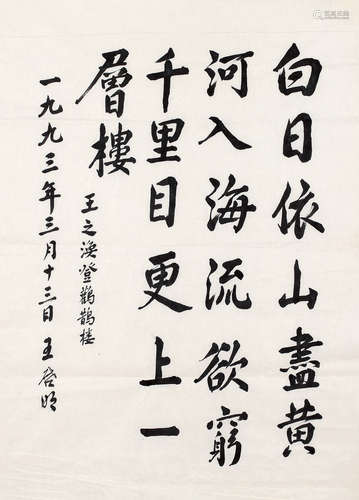 白日依山盡黄
河入海流欲窮
千里目更上一
層樓
王之渙登鸛鵲楼
一九九三年三月十三日 王啓明